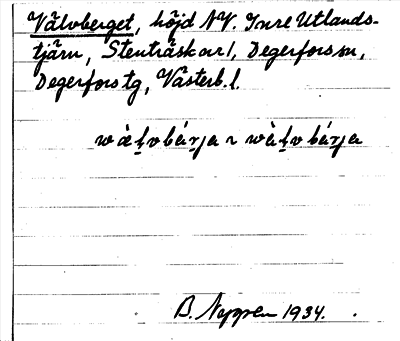 Välvberget, höjd NV. Inre Utlands-
tjärn, Stenträsk ar l, Degerfors sn,
Degerfors tg, Västerb. l.
wàḻvbárja ~ wàḻvbárja
B. 1934.